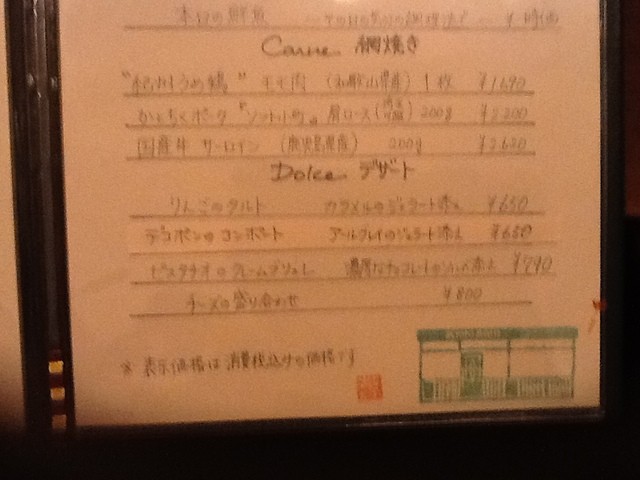 本日の鮮魚 ¥時価
Carne 網焼き
"紀州うめ鶏" モモ肉 (和歌山県産) 1枚 ¥1690
ポーク 肩ロース 200g ¥2200
国産牛 サーロイン (鹿児島県産) 200g
Dolce デザート
りんごのタルト カラメルのジェラート添え ¥650
デコポンのコンポート アールグレイのジェラート添え ¥650
ピスタチオのクレームブリュレ 濃厚なチョコレートの 添え ¥790
チーズの盛り合わせ ¥800
※ 表示価格は消費税込みの価格です